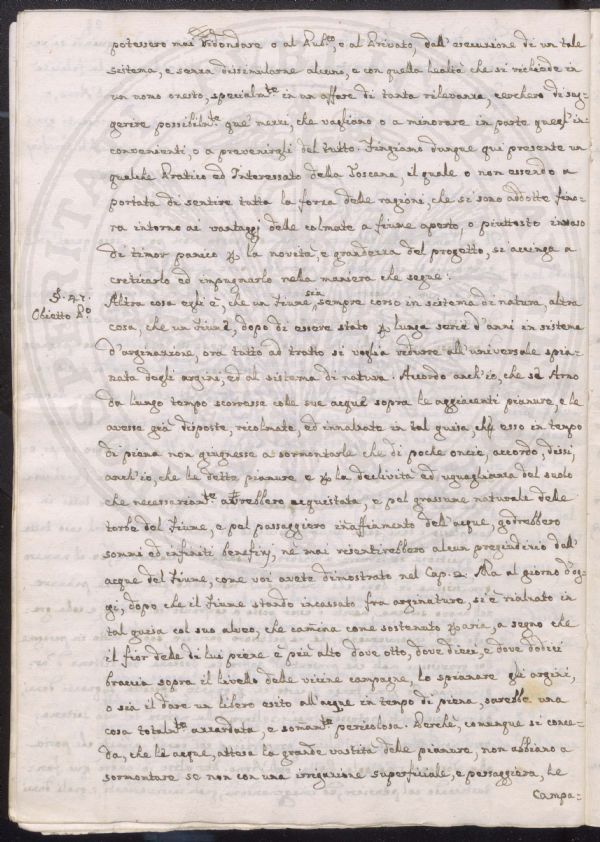 potessero mai ridondare o al Pub.co, o al Privato, dall'esecuzione di un tale
sistema, e senza dissimularne alcuno, e con quella lealtà che si richiede in
un uomo onesto, specialm.te in un affare di tanta rilevanza, cercherò di sug-
gerire possibilm.te que' mezzi, che vagliano o a minorare in parte quegl'in-
convenienti, o a prevenirgli del tutto. Fingiamo dunque qui presente un
qualche Pratico ed Interessato della Toscana, il quale o non essendo a
portata di sentire tutta la forza delle ragioni, che si sono addotte fino-
ra intorno ai vantaggi delle colmate a fiume aperto, o piuttosto invaso
di timor panico per la novità, e grandezza del progetto, si accinga a
criticarlo ed impugnarlo nella maniera che segue:
§. 47.
Obietto P.o
Altra cosa egli è, che un fiume sia sempre corso in sistema di natura, altra
cosa, che un fiume, dopo di essere stato per lunga serie d'anni in sistema
d'arginazione, ora tutto ad tratto si voglia ridurre all'universale spia-
nata degli argini, ed al sistema di natura. Accordo anch'io, che se Arno
da lungo tempo scorresse colle sue acque sopra le aggiacenti pianure, e le
avesse già disposte, ricolmate, ed innalzate in tal guisa, che esso in tempo
di piena non giugnesse a sormontarle che di poche oncie, accordo, dissi,
anch'io, che le dette pianure e per la declività ed uguaglianza del suolo
che necessariam.te avrebbero acquistata, e pel grassume naturale delle
torbe del fiume, e pel passaggiero inaffiamento dell'acque, godrebbero
sommi ed infiniti benefizj, ne mai risentirebbero alcun pregiudizio dall'
acque del fiume, come voi avete dimostrato nel Cap. 2. Ma al giorno d'og-
gi, dopo che il fiume stando incassato fra arginature, si è rialzato in
tal guisa col suo alveo, che camina come sostenuto per aria, a segno che
il fior delle di lui piene è più alto dove otto, dove dieci, e dove dodici
braccia sopra il livello delle vicine campagne, lo spianare gli argini,
o sia il dare un libero esito all'acque in tempo di piena, sarebbe una
cosa totalm.te azzardata, e somam.te pericolosa. Perchè, comunque si conce-
da, che le acque, attesa la grande vastità delle pianure, non abbiano a
sormontare se non con una irrigazione superficiale, e passaggiera, le
Campa=